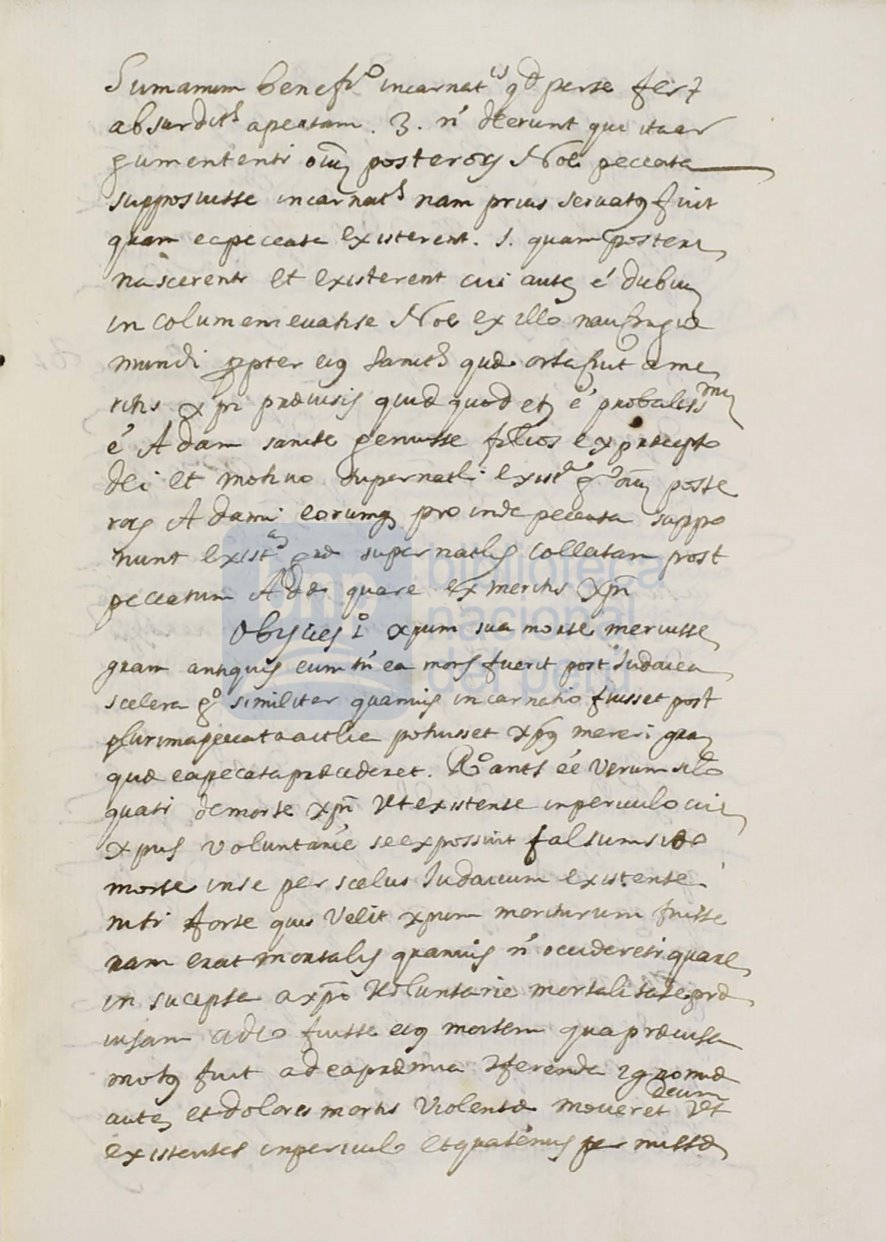 Sumamum benefi.º incarnat.is qd perse fert
absurdit.s apertam. 3. n' deerunt qui ita ar
gumententr oiũ posteros Noe peccata
supposuisse incarnat.s nam prius servatus fuit
quam ea peccata existerent. s. quam posteri
nascerentr et existerent cui autẽ é dubiũ
incolumem evasisse Noe ex illo naufragio
mundi ppter eius sanct.s quæ orta fuit a me
ritis xpi prævisis quid quod etẽ é probalissmũ
é Adam sancte genuisse filios ex præcepto
dei et motivo supernatli exist. g.º oiũ poste
ros Adami eorumq proinde peccata suppo
nunt exist. græ supernatlis collatam post
peccatum Adæ quare ex meritis xpñ
Obijcies 1.º xpum sua morte meruisse
gram antiquis cum tñ ea mors fuerit post Judaica
scelera g.º similiter quamvis incarnatio fuisset post
plurima peccata actlia potuisset xps mereri grã
quæ ea pecata præcederet. R.º ants éé verum silo
quati de morte xpñ ut existente in periculo cui
xpus voluntarié se expossuit falsum si do
morte in se per scelus Judaicum existente
nisi forte quis velit xpum moriturum fuisse
nam erat mortalis quamvis n' occideretr quare
in sucepta a xpo voluntarie mortalitate præ
visam a deo fuisse eius mortem qua prævisa
motus fuit ad ea præmia referenda ignomiæ
autẽ et dolores mortis violentæ moveret deum ut
existentes in periculo et quatenus permissæ